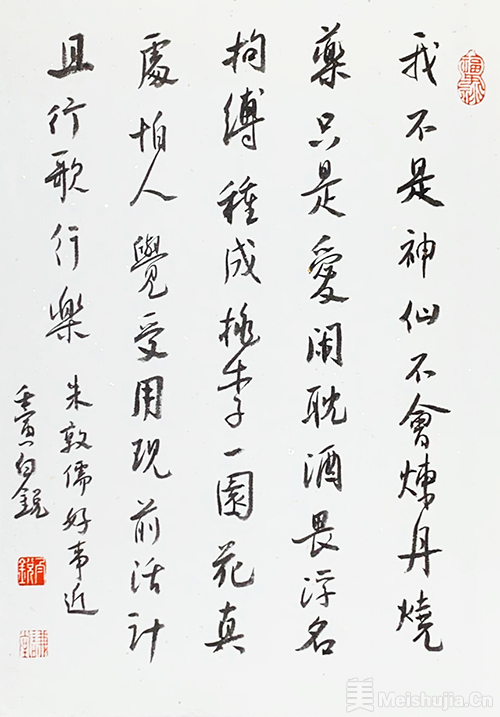 我不是神仙不會煉丹燒
藥只是愛閑耽酒畏浮名
拘縛種成桃李一園花真
處怕人覺受用現前活計
且行歌行樂
朱敦儒好事近
壬寅白銳
美 Meishujia.Cn